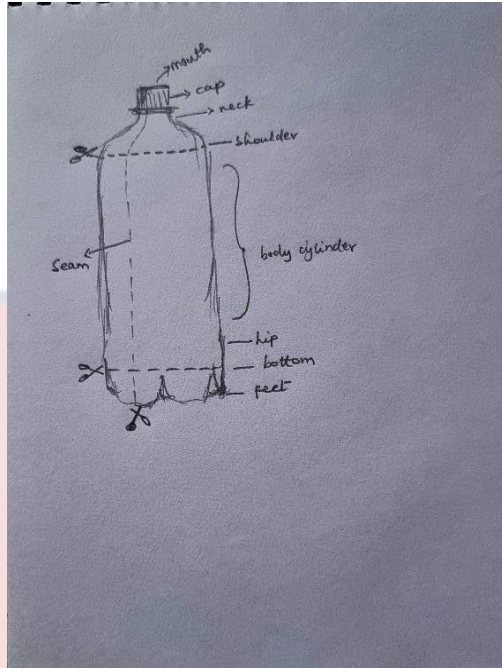 mouth
cap
neck
shoulder
body cylinder
Seam
hip
bottom
feet